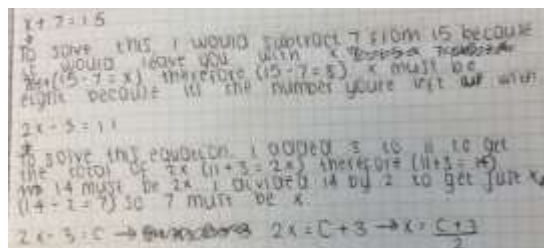 x + 7 = 15
To solve this, I would subtract 7 from 15 because
it would leave you with x
(15 - 7 = x) therefore (15 - 7 = 8) x must be
eight because its the number youre left with
2x - 3 = 11
To solve this equation I added 3 to 11 to get
the total of 2x (11 + 3 = 2x) therefore (11 + 3 = 14)
14 must be 2x I divided 14 by 2 to get just x
(14 ÷ 2 = 7) so 7 must be x.
2x - 3 = C → 2x = C + 3 → x = C + 3